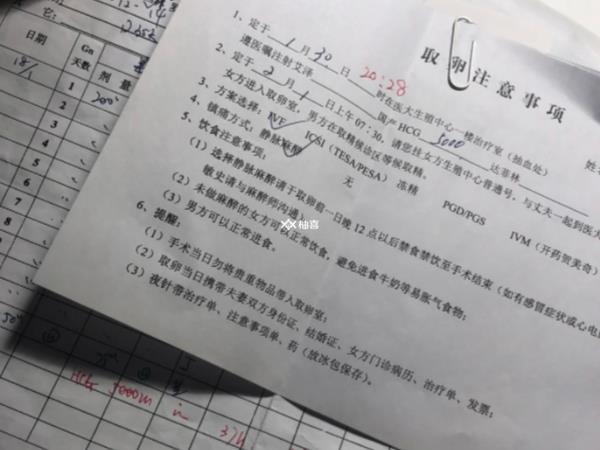 取卵注意事项
1、定于 1 月 30 日 20:28 时在医大生殖中心一楼治疗室（抽血处）
遵医嘱注射艾泽 国产 HCG 5000 达菲林
2、定于 2 月 1 日上午 07:30，请您挂女方生殖中心普通号，与丈夫一起到医大
女方进入取卵室，男方在取精候诊区等候取精。
3、方案选择：IVF ICSI（TESA/PESA） 冻精 PGD/PGS IVM（开药贺美奇）
4、镇痛方式：静脉麻醉 无
5、饮食注意事项：
（1）选择静脉麻醉请于取卵前一日晚 12 点以后禁食禁饮至手术结束（如有感冒症状或心电
敏史请与麻醉师沟通
（2）未做麻醉的女方可以正常饮食，避免进食牛奶等易胀气食物；
（3）男方可以正常进食。
6、提醒：
（1）手术当日勿将贵重物品带入取卵室；
（2）取卵当日携带夫妻双方身份证、结婚证、女方门诊病历、治疗单、发票；
（3）夜针带治疗单、注意事项单、药（放冰包保存）。
柚喜
日期 Gn天数 剂量
18/1 1
2
3
4
5
6
7
8
9